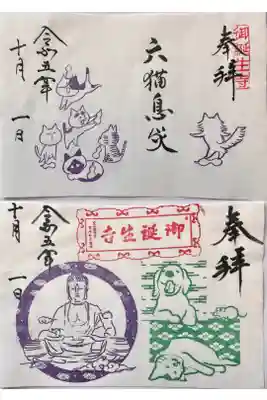 奉拝
御誕生寺
六猫息災
令和五年
十月 一日
奉拝
御誕生寺
令和五年
十月 一日